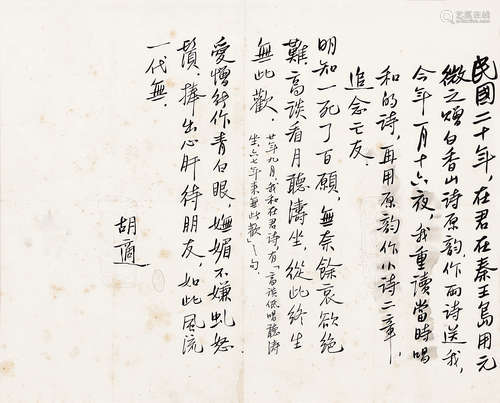 民國二十年，在君在秦王島用元
微之贈白香山诗原韵，作两诗送我，
今年一月十六夜，我重讀當時唱
和的诗，再用原韵作小诗二章，
追念亡友。
明知一死了百願，無奈餘哀欲絶
難，高談看月聽濤坐，從此終生
無此歡。
廿年九月我和在君诗，有「高談低唱聽濤
坐，六七年来無此歡」句
愛憎能作青白眼，嫵媚不嫌虬怒
鬚，捧出心肝待朋友，如此風流
一代無。
胡適